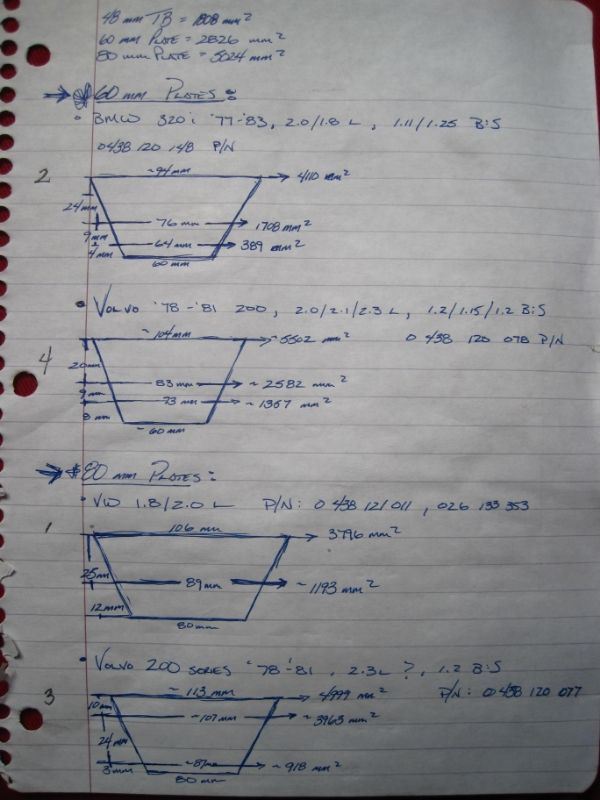 48 mm TB = 1808 mm²
60 mm PLATE = 2826 mm²
80 mm PLATE = 5024 mm²
60 mm PLATES:
• BMW 320i '77-'83, 2.0/1.8 L, 1.11/1.25 B:S
0438 120 148 P/N
2
~94mm
4110 mm²
24mm
76 mm
1708 mm²
9mm
64mm
389 mm²
4mm
60 mm
• VOLVO '78-'81 200, 2.0/2.1/2.3 L, 1.2/1.15/1.2 B:S
~104mm
~5502 mm²
0 438 120 078 P/N
4
20mm
83mm
~2582 mm²
9mm
~73 mm
~1357 mm²
8 mm
~60 mm
80 mm PLATES:
• VW 1.8/2.0 L P/N: 0 438 121 011, 026 133 353
1
106 mm
3796 mm²
25mm
89mm
~1193 mm²
12mm
80mm
• VOLVO 200 SERIES '78-'81, 2.3L ?, 1.2 B:S
3
~113 mm
4999 mm²
P/N: 0 438 120 077
10mm
~107mm
~3963 mm²
24mm
~87mm
~918 mm²
3mm
80 mm